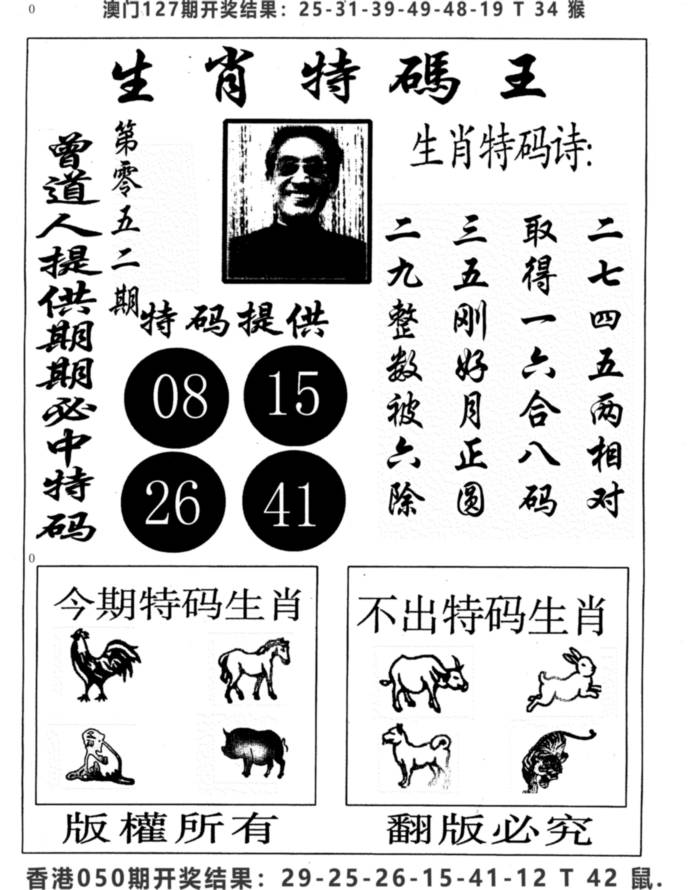 0
澳门127期开奖结果：25-31-39-49-48-19 T 34 猴
生肖特碼王
曾道人提供期期必中特码
第零五二期
生肖特码诗:
二七四五两相对
取得一六合八码
三五刚好月正圆
二九整数被六除
特码提供
08
15
26
41
0
今期特码生肖
不出特码生肖
版權所有
翻版必究
香港050期开奖结果：29-25-26-15-41-12 T 42 鼠.